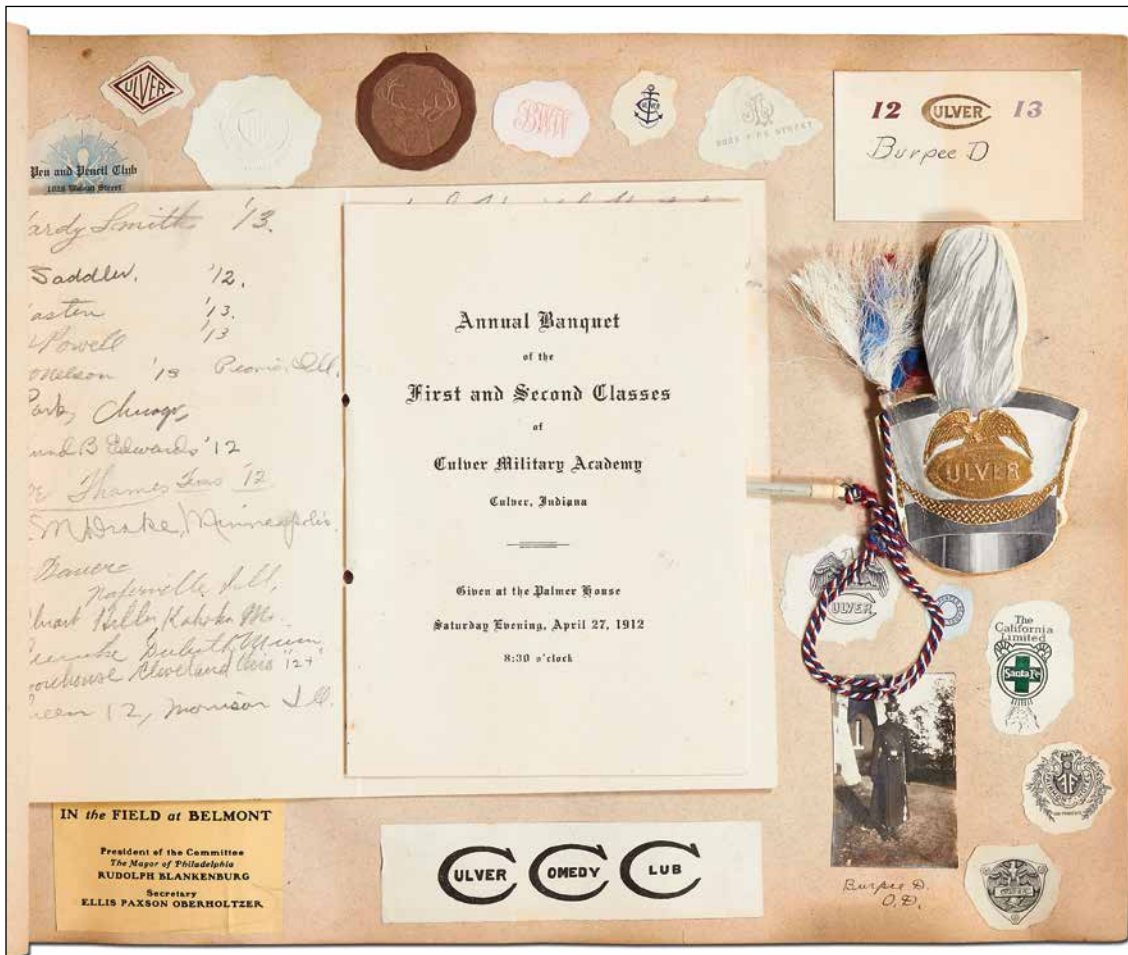 CULVER
CULVER
BWW
12 CULVER 13
Burpee D
Pen and Pencil Club
1026 Walnut Street
ardy Smith '13.
Saddler. '12.
asten '13.
Powell '13
onelson '13 Peoria, Ill.
Park, Chicago
und B Edwards '12
Thames Texas '12
S. M. Drake, Minneapolis.
Bauer
Naperville, Ill.
uart Hiller, Kahoka Mo.
Duluth, Minn
orehouse Cleveland Ohio '12+
ueen 12, Morrison Ill.
Annual Banquet
of the
First and Second Classes
of
Culver Military Academy
Culver, Indiana
Given at the Palmer House
Saturday Evening, April 27, 1912
8:30 o'clock
CULVER
CULVER
The
California
Limited
Santa Fe
FAIRMONT HOTEL
SAN FRANCISCO
CULVER
Burpee D.
O.D.
IN the FIELD at BELMONT
President of the Committee
The Mayor of Philadelphia
RUDOLPH BLANKENBURG
Secretary
ELLIS PAXSON OBERHOLTZER
CULVER COMEDY CLUB